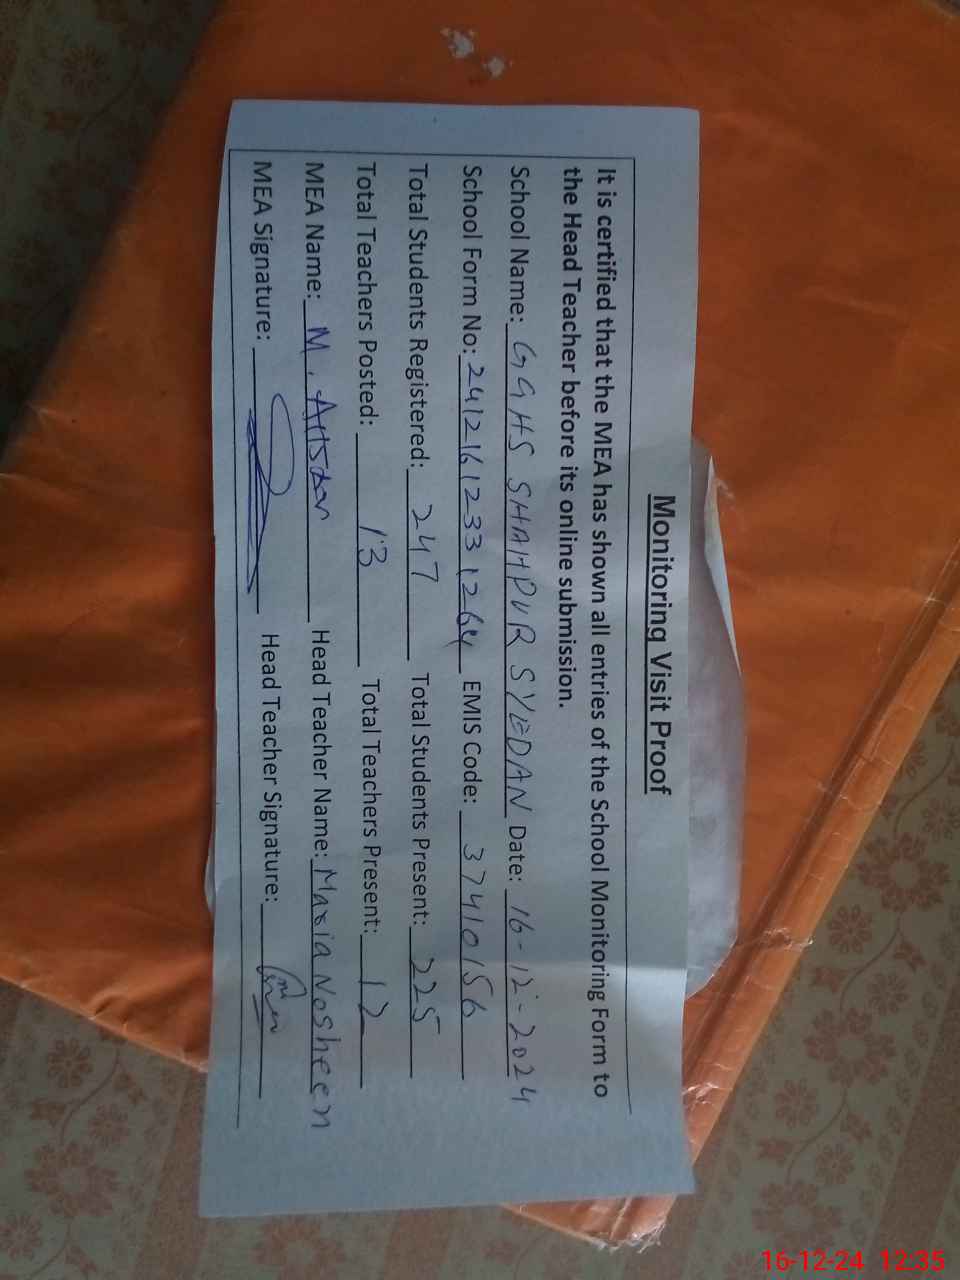 Monitoring Visit Proof
It is certified that the MEA has shown all entries of the School Monitoring Form to
the Head Teacher before its online submission.
School Name: GGHS SHAHPUR SYEDAN Date: 16-12-2024
School Form No: 24121612331264 EMIS Code: 37410156
Total Students Registered: 247 Total Students Present: 225
Total Teachers Posted: 13 Total Teachers Present: 12
MEA Name: M. Head Teacher Name: Maria Nosheen
MEA Signature: Head Teacher Signature:
16-12-24 12:35